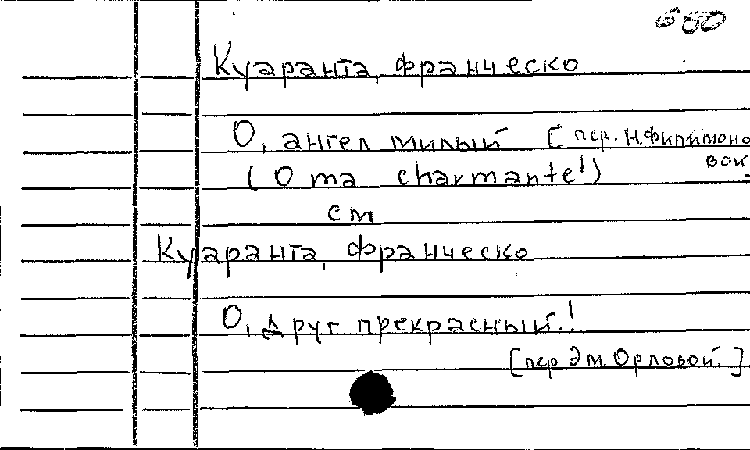 600
Куаранта, франческо
О, ангел милый [пер. Н.Филимоно
вой
(O ma charmante!)
см
Куаранта, франческо
О, друг прекрасный!
[пер Эм.Орловой.]